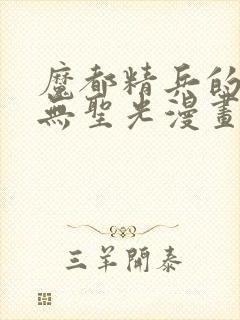 魔都精兵的
無聖光漫畫
三羊開泰